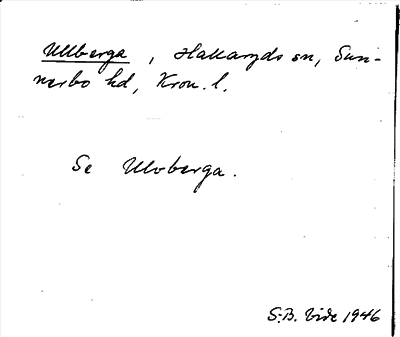 Ullberga, Hallaryds sn, Sun-
nerbo hd, Kron. l.
Se Ulvberga.
S.B. Vide 1946